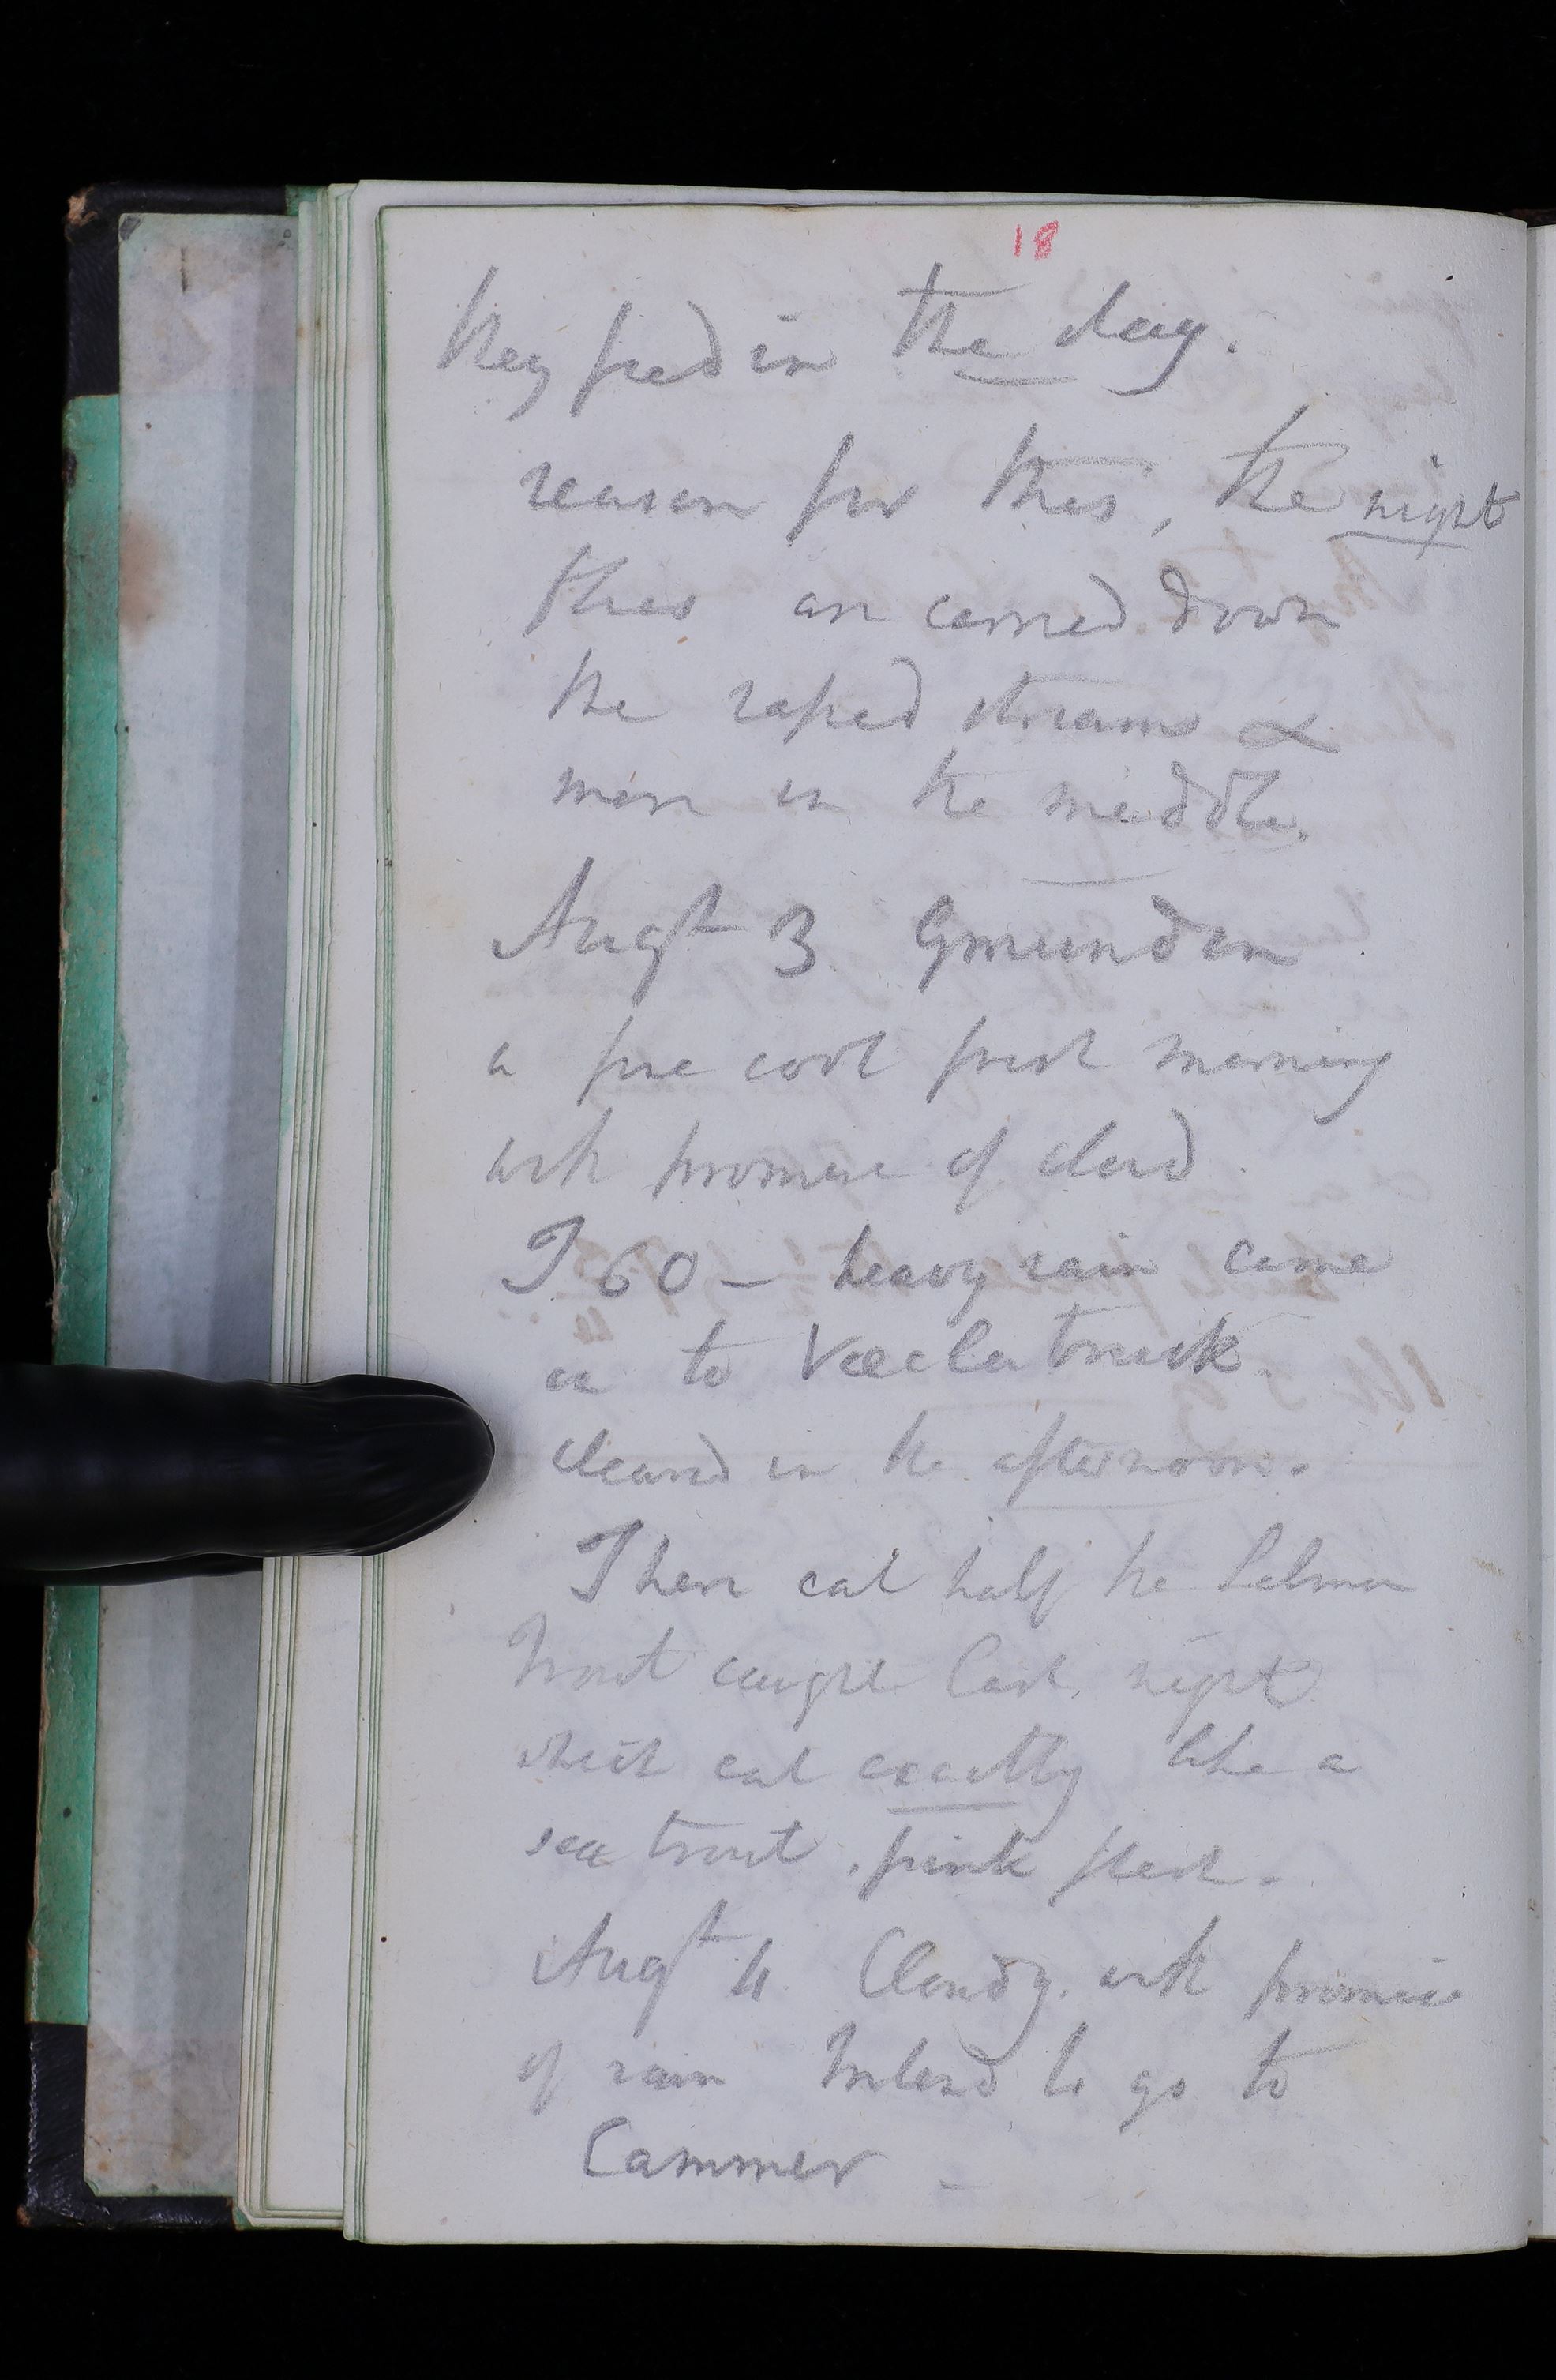 18
they feed in the day.
reason for this, the night
flies are carried down
the rapid streams &
more in the middle.
Augt 3 Gmunden
a fine cool fresh morning
with promise of cloud
T 60 - heavy rain came
on to Vöcklabruck.
cleared in the afternoon.
There eat half the Salmon
trout caught last night
which eat exactly like a
sea trout. pink flesh.
Augt 4 Cloudy. with promise
of rain Intend to go to
Cammer -